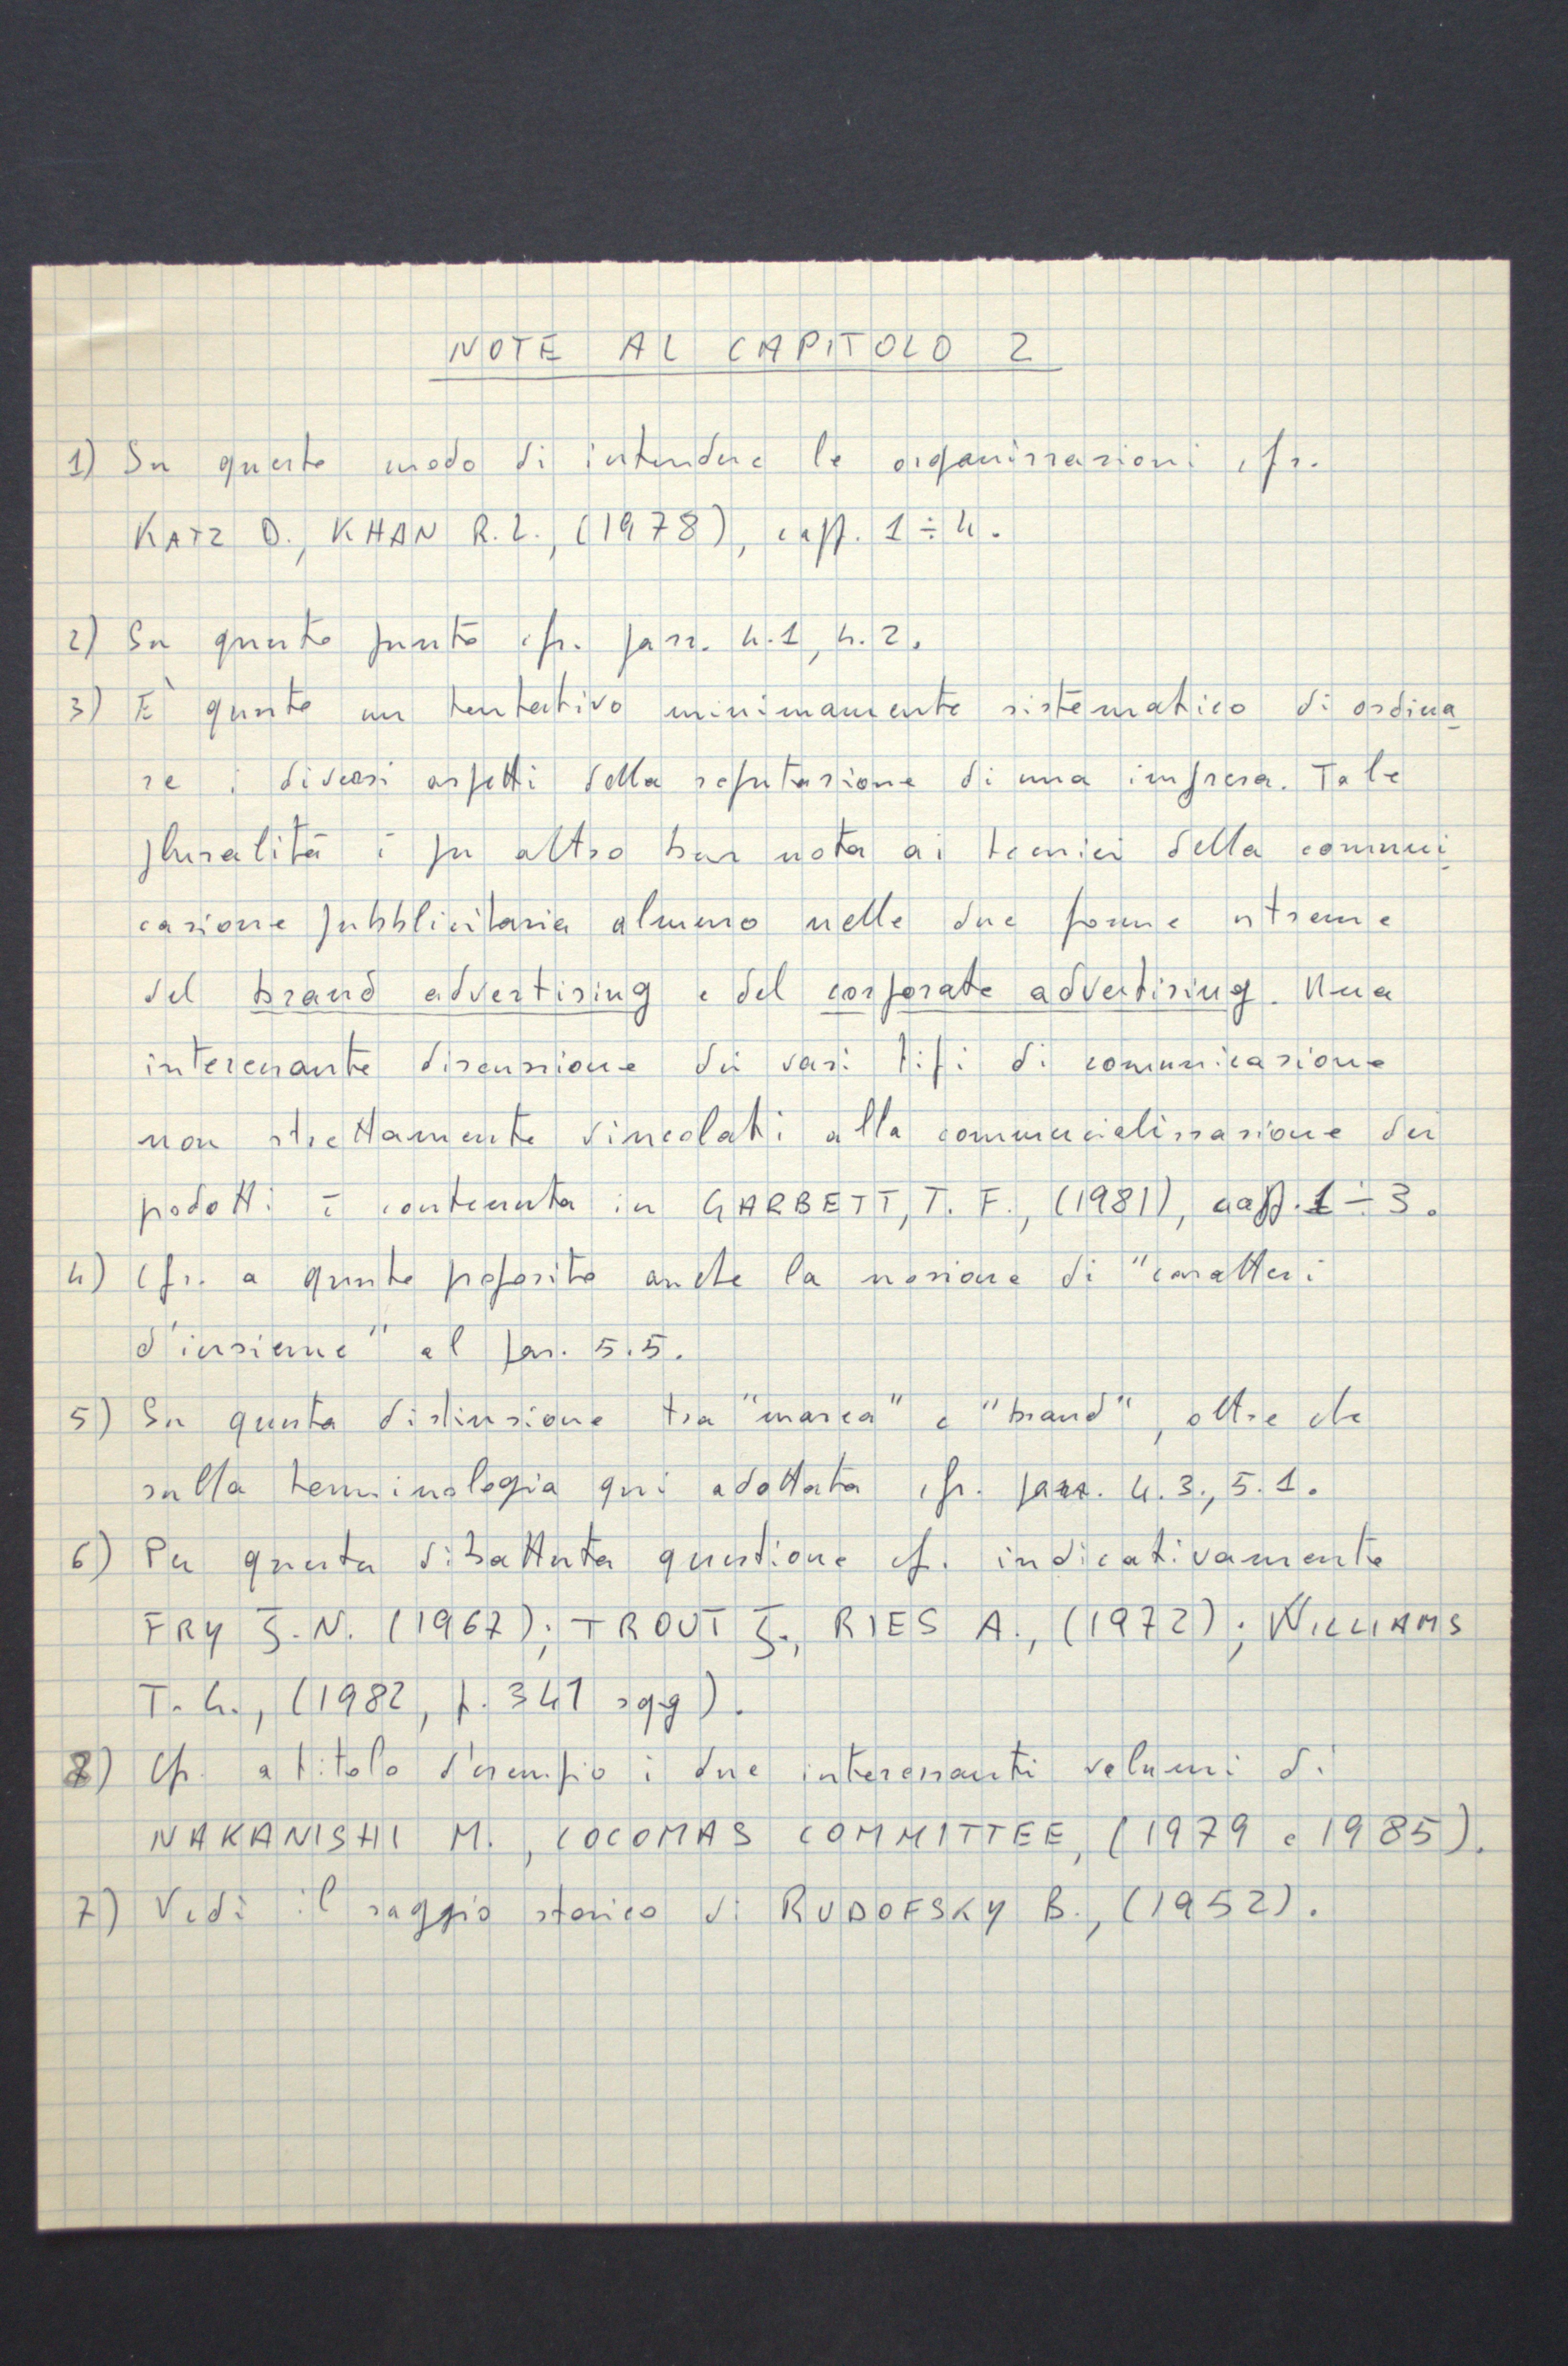 NOTE AL CAPITOLO 2
1) Su questo modo di intendere le organizzazioni cfr.
KATZ D., KHAN R.L., (1978), capp. 1÷4.
2) Su questo punto cfr. parr. 4.1, 4.2.
3) È questo un tentativo minimamente sistematico di ordina
re i diversi aspetti della reputazione di una impresa. Tale
pluralità è per altro ben nota ai tecnici della comuni
cazione pubblicitaria almeno nelle due forme estreme
del brand advertising e del corporate advertising. Una
interessante discussione dei vari tipi di comunicazione
non strettamente vincolati alla commercializzazione dei
prodotti è contenuta in GARBETT, T. F., (1981), capp. 1÷3.
4) Cfr. a questo proposito anche la nozione di "caratteri
d'insieme" al par. 5.5.
5) Su questa distinzione tra "marca" e "brand", oltre che
sulla terminologia qui adottata cfr. parr. 4.3., 5.1.
6) Per questa dibattuta questione cfr. indicativamente
FRY J.N. (1967); TROUT J., RIES A., (1972); WILLIAMS
T. G., (1982, p. 341 sgg).
8) Cfr. a titolo d'esempio i due interessanti volumi di
NAKANISHI M., COCOMAS COMMITTEE, (1979 e 1985).
7) Vedi il saggio storico di RUDOFSKY B., (1952).